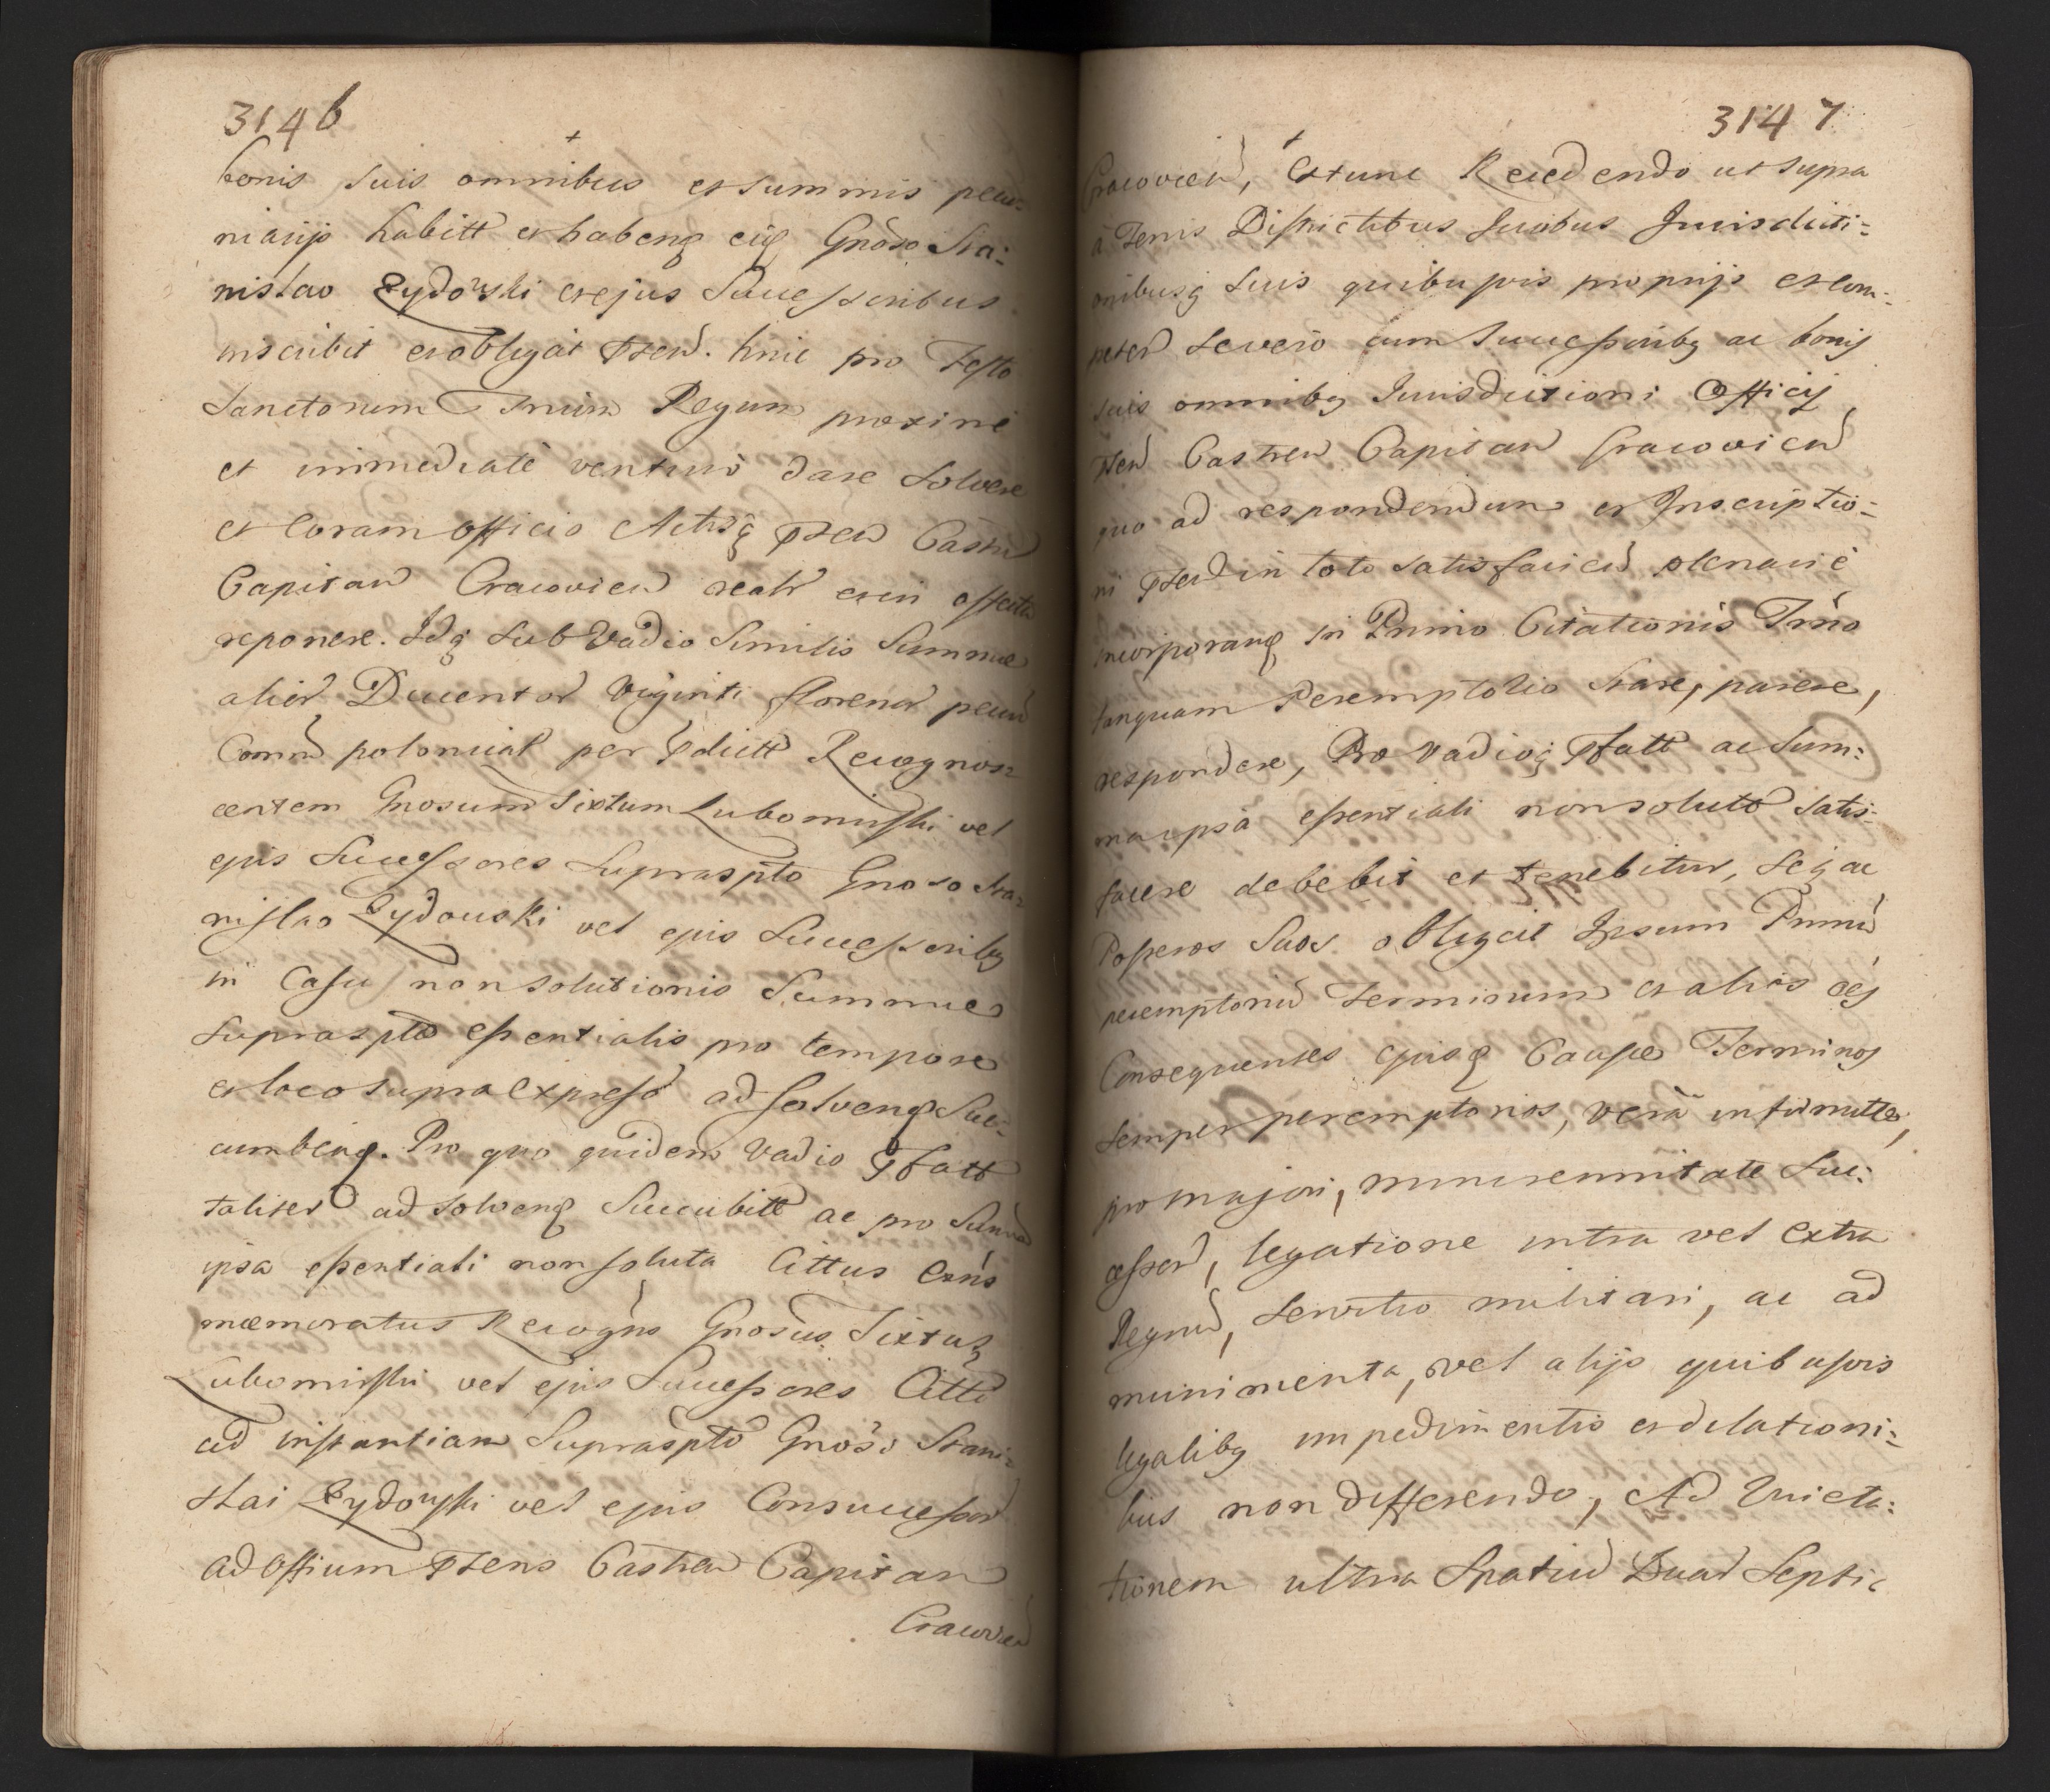 3146
bonis suis omnibus et summis pecu:
niarijs habitt et habenq eiq Gnoso Sta:
nislao Zydowski et ejus Successoribus
inscribit et obligat pten. hinc pro Festo
Sanctorum Trium Regum proximè
et immediatè venturo dare solvere
et coram officio Actisq pten Castr
Capitan Cracovien realr cum effectu
reponere. Idq sub Vadio Similis Summae
alier Ducentor Viginti florenor pecun
Comn polonical per pdictt Recognos=
centem Gnosum Sixtum Lubomirski vel
ejus Successores Supraspto Gnoso Sta=
nislao Zydouski vel ejus Successoribq
in Casu non solutionis Summae
supraspta essentialis pro tempore
et loco supra expresso ad solvenq Suc=
cumbenq. Pro quo quidem Vadio pfatt
taliter ad solvenq Succubitt ac pro Summa
ipsa essentiali non soluta Cittus Exns
memoratus Recogns Gnosus Sixtus
Lubomirski vel ejus Successores Citti
ad instantiam Supraspto Gnoso Stani=
slai Zydowski vel ejus Consuccessor
ad offium ptens Castren Capitan
Cracovien
3147
Cracovien, Extunc Recedendo ut supra
à Terris Districtibus foribus Jurisdicti=
onibusq suis quibusvis proprijs et com:
peten severo cum Successoribq ac bonis
suis omnibq Jurisdictioni Officij
pten Castren Capitan Cracovien
quo ad respondendum et Inscriptio=
ni pten in toto satisfacien plenariè
incorporanq in Primo Citationis Trno
tanquam Peremptorio stare, parere,
respondere, Pro Vadioq pfatt ac Sum:
ma ipsa essentiali non soluta satis=
facere debebit et tenebitur, seq ac
Posteros Suos obligat Ipsum Primu
peremptoriu Terminum et alios oes
Consequentes ejusq Causae Terminos
semper peremptorios, verà infirmitte,
pro majori, minorennitate Suc:
cessor, legatione intra vel extra
Regnu, servitio militari, ac ad
munimenta, vel alijs quibusvis
legalibq impedimentis et dilationi=
bus non differendo, Ad Enicta:
tionem ultra Spatiu Duar Septi